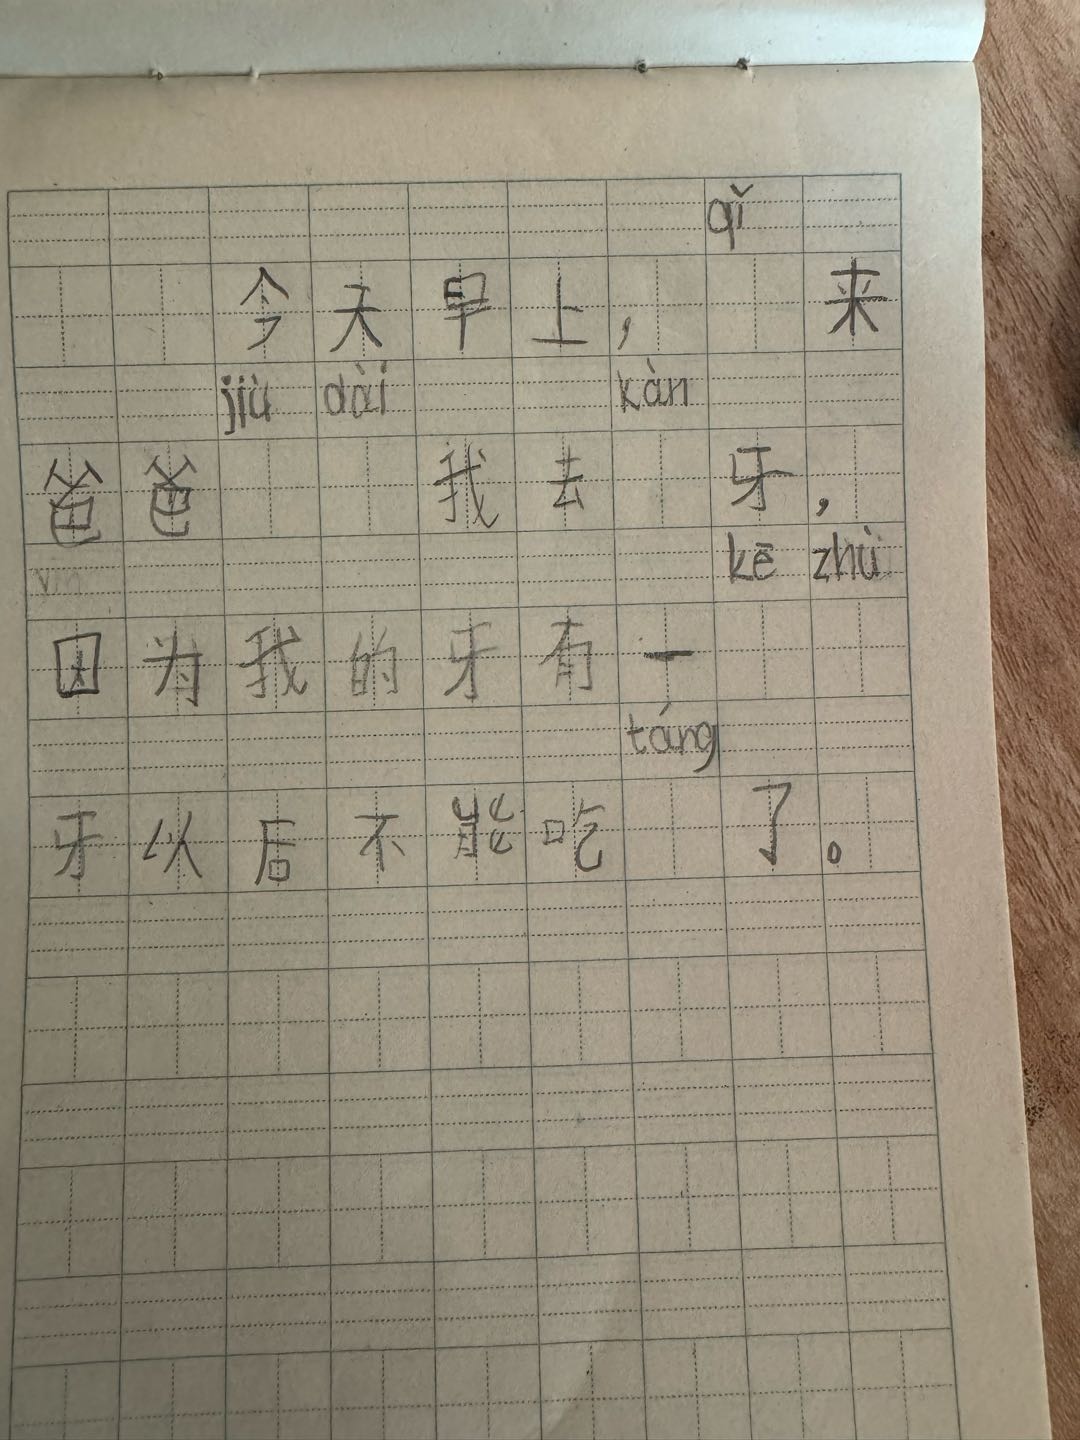 qǐ
今天早上，来
jiù dài kàn
爸爸我去牙，
kē zhù
因为我的牙有一
táng
牙以后不能吃了。